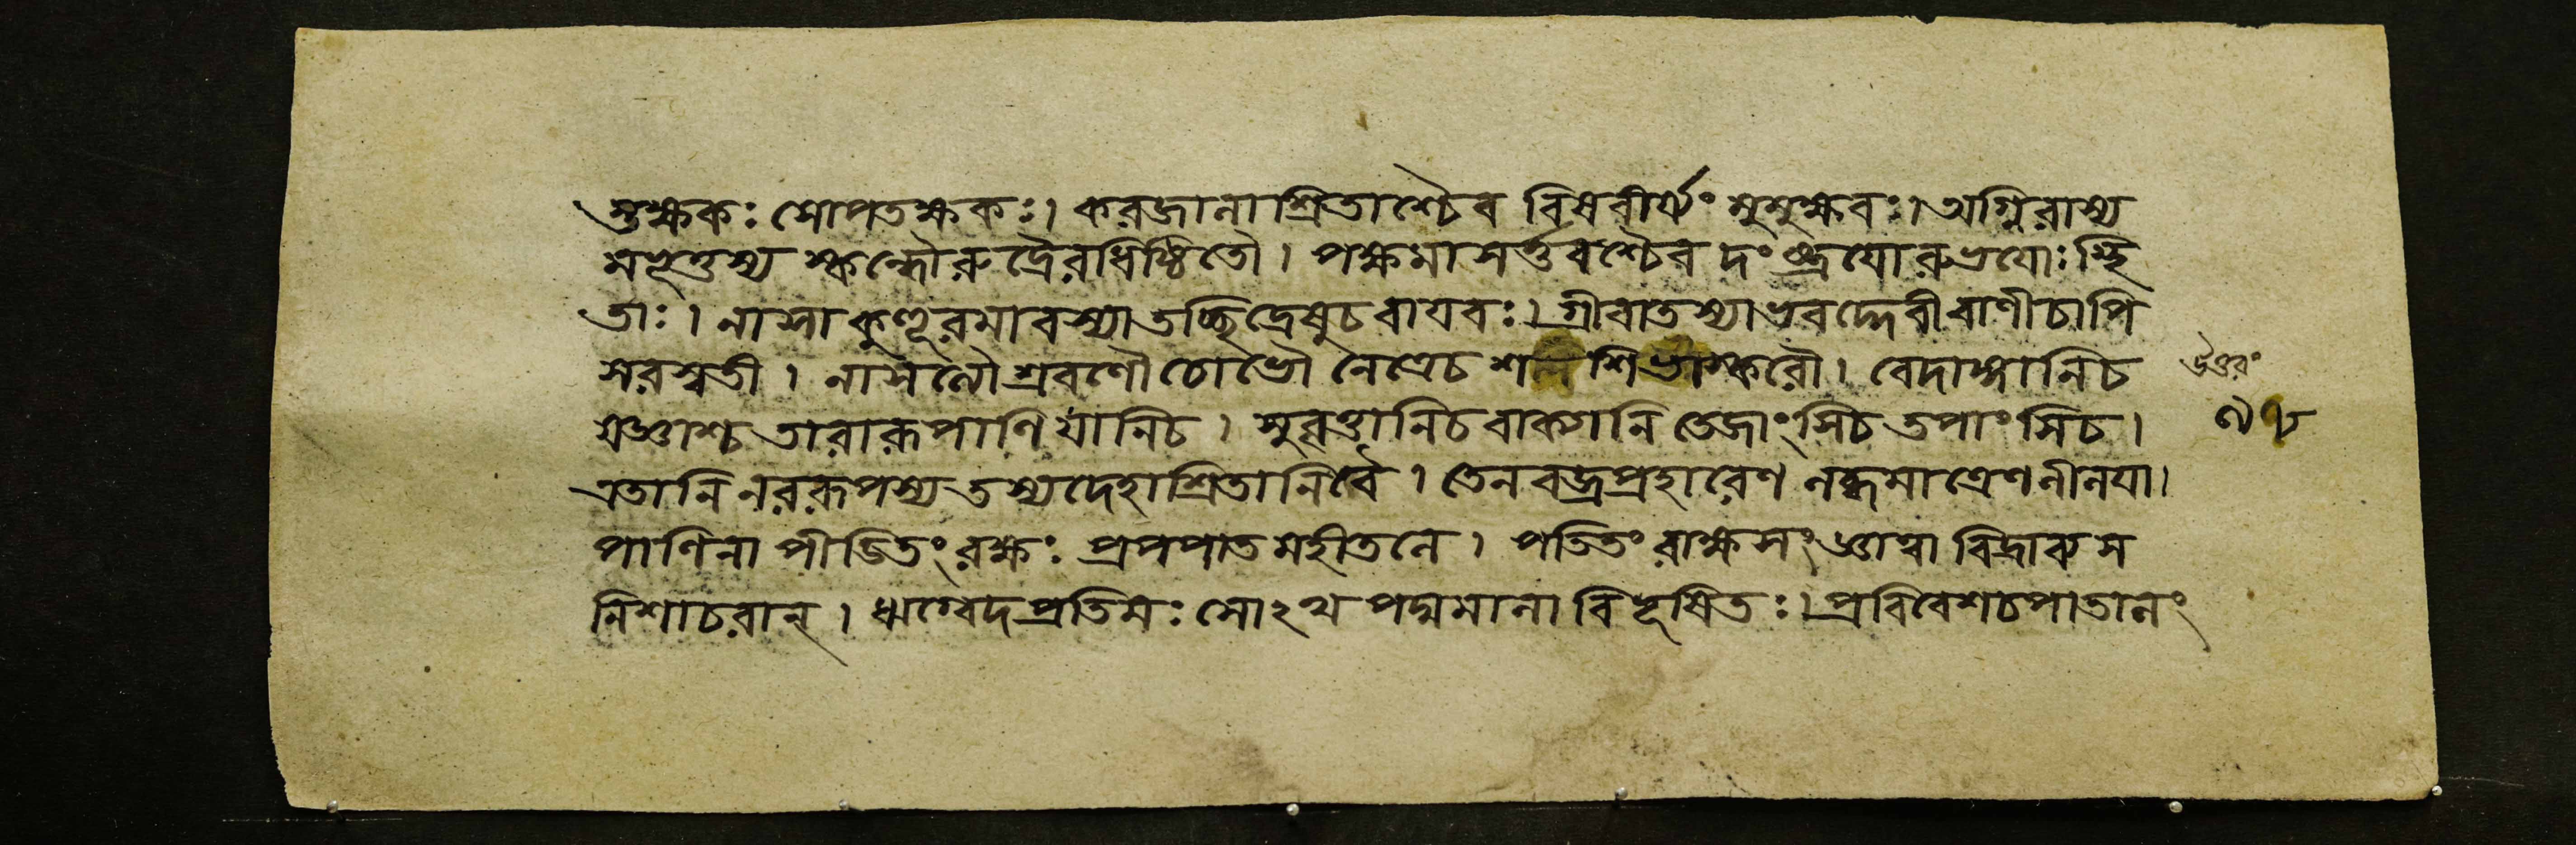 স্তক্ষকঃ সোপতক্ষকঃ। করজানাশ্রিতাশ্চৈব বিষবীর্য্যং মুমুক্ষবঃ। অগ্নিরাস্য
মভূত্তস্য স্কন্ধৌ রুদ্রৈরধিষ্ঠিতৌ। পক্ষমাসর্ত্তবশ্চৈব দংষ্ট্রযোরুভযোঃ স্থি
তাঃ। নাসা কুহূরমাবস্যা তচ্ছিদ্রেষু চ বাযবঃ। গ্রীবা তস্যাভবদ্দেবী বাণী চাপি
সরস্বতী। নাসত্যৌ শ্রবণৌ চোভৌ নেত্রে চ শশিভাস্করৌ। বেদাঙ্গানি চ
যজ্ঞাশ্চ তারারূপাণি যানি চ। সুবৃত্তানি চ বাক্যানি তেজাংসি চ তপাংসি চ।
এতানি নররূপস্য তস্য দেহাশ্রিতানি বৈ। তেন বজ্রপ্রহারেণ লব্ধমাত্রেণ লীলযা।
পাণিনা পীডিতং রক্ষঃ প্রপপাত মহীতলে। পতিতং রাক্ষসং জ্ঞাত্বা বিদ্রাব্য স
নিশাচরান্। ঋগ্বেদপ্রতিমঃ সোঽথ পদ্মমালাবিভূষিতঃ। প্রবিবেশ চ পাতালং
উত্তরং
৭৮